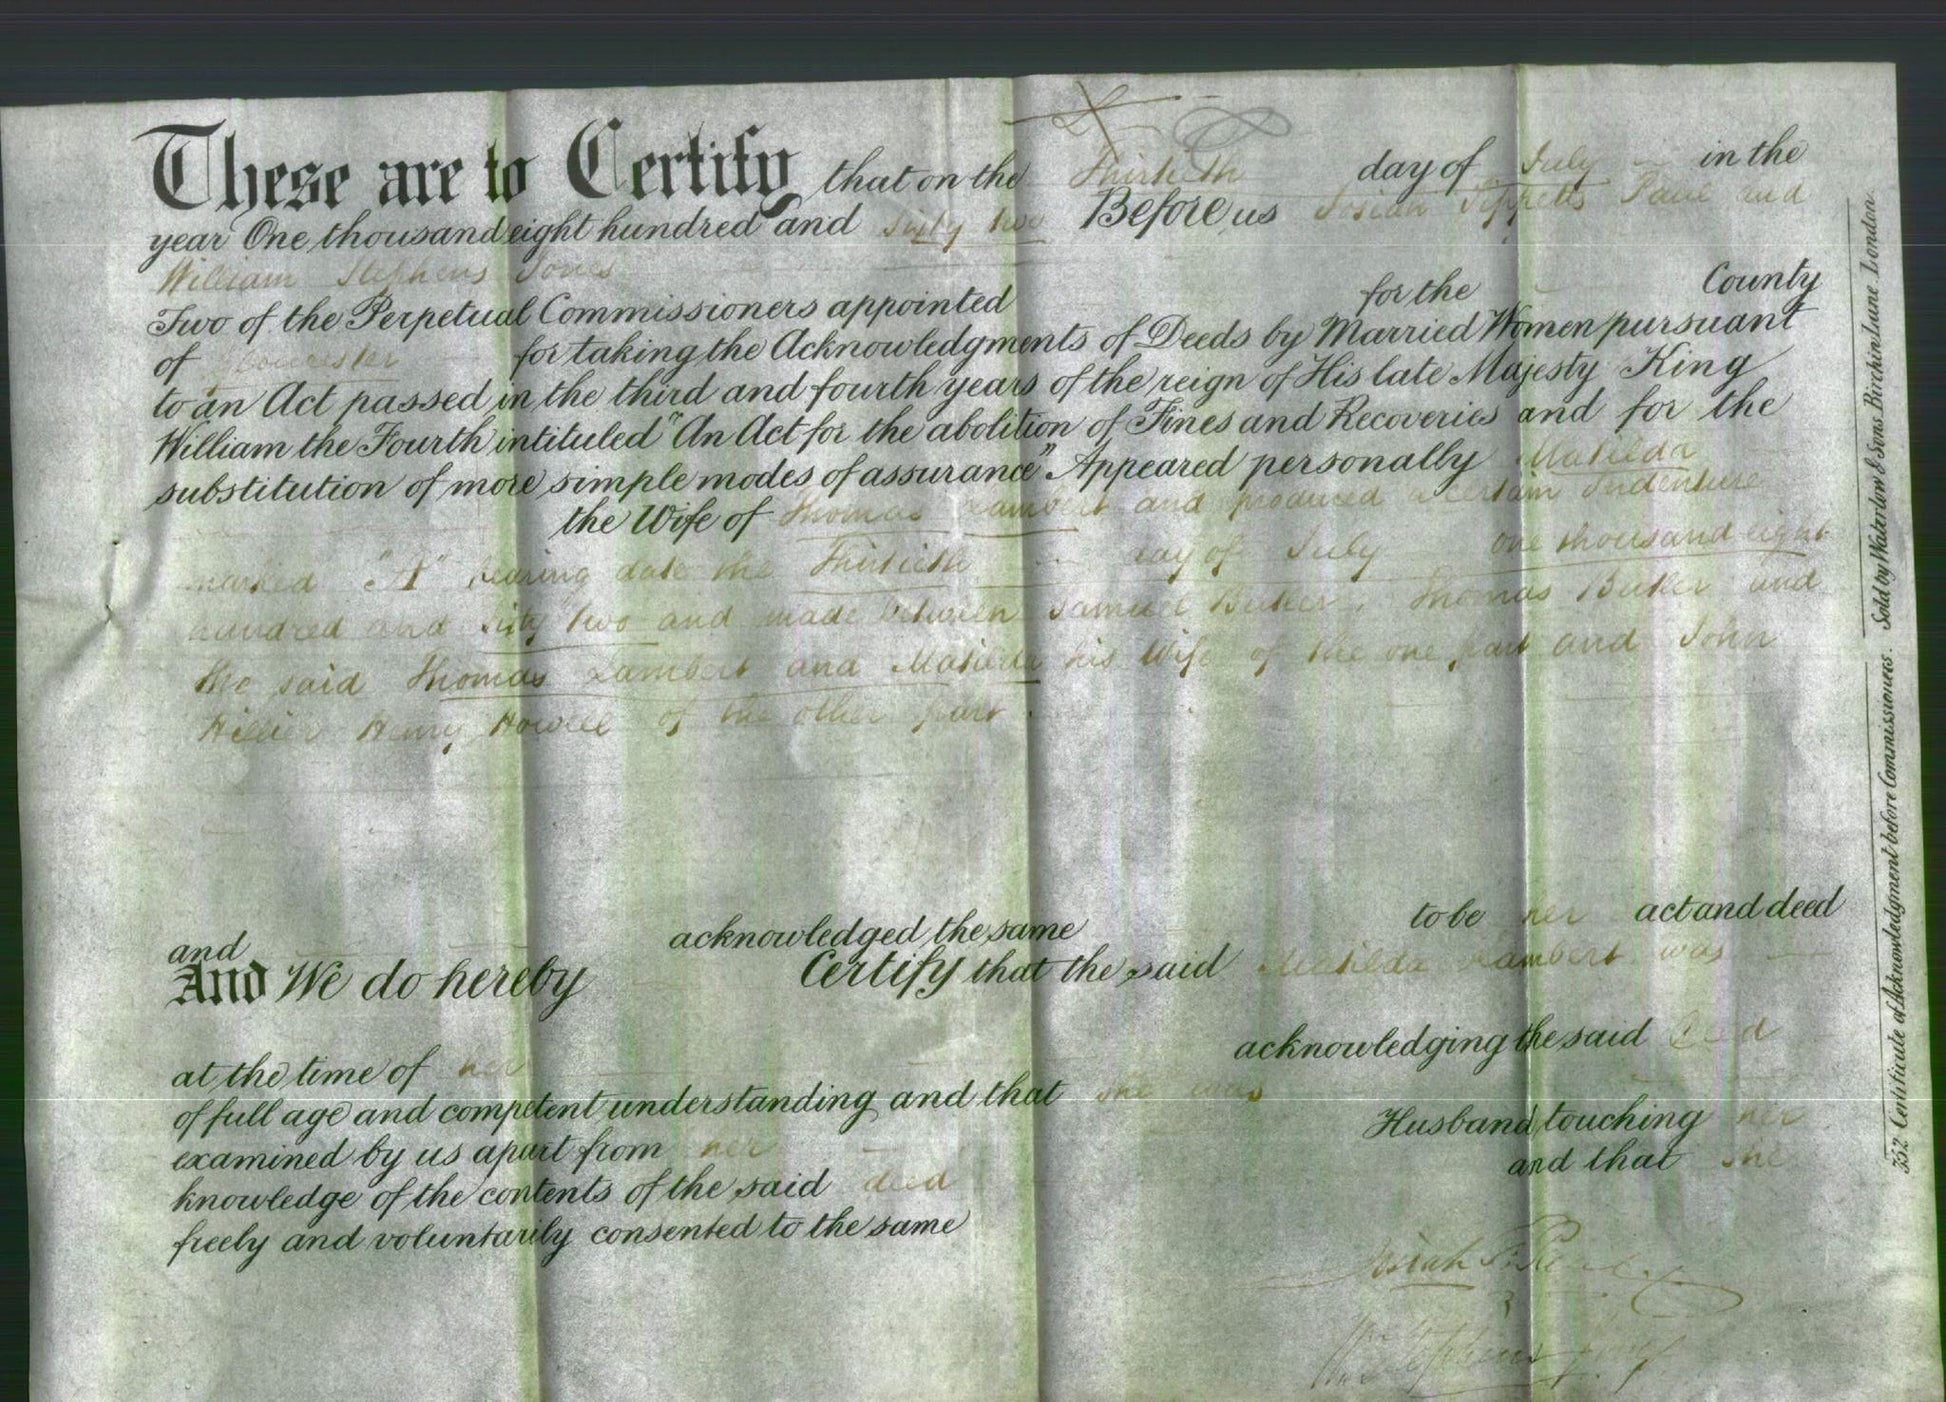 These are to Certify that on the Thirtieth day of July in the
year One thousand eight hundred and Sixty two Before us Josiah Tippetts Paul and
William Stephens Jones
Two of the Perpetual Commissioners appointed for the County
of Gloucester for taking the Acknowledgments of Deeds by Married Women pursuant
to an Act passed in the third and fourth years of the reign of His late Majesty King
William the Fourth intituled "An Act for the abolition of Fines and Recoveries and for the
substitution of more simple modes of assurance" Appeared personally Matilda
the Wife of Thomas Lambert and produced a certain Indenture
marked "A" bearing date the Thirtieth day of July one thousand eight
hundred and sixty two and made between Samuel Butler, Thomas Butler and
the said Thomas Lambert and Matilda his Wife of the one part and John
Hillier Henry Howell of the other part
and acknowledged the same to be her act and deed
And We do hereby Certify that the said Matilda Lambert was
at the time of her acknowledging the said Deed
of full age and competent understanding and that she was
examined by us apart from her Husband touching her
knowledge of the contents of the said deed and that she
freely and voluntarily consented to the same
Josiah T. Paul
Wm Stephens Jones
352 Certificate of Acknowledgment before Commissioners. Sold by Waterlow & Sons Birchin Lane London